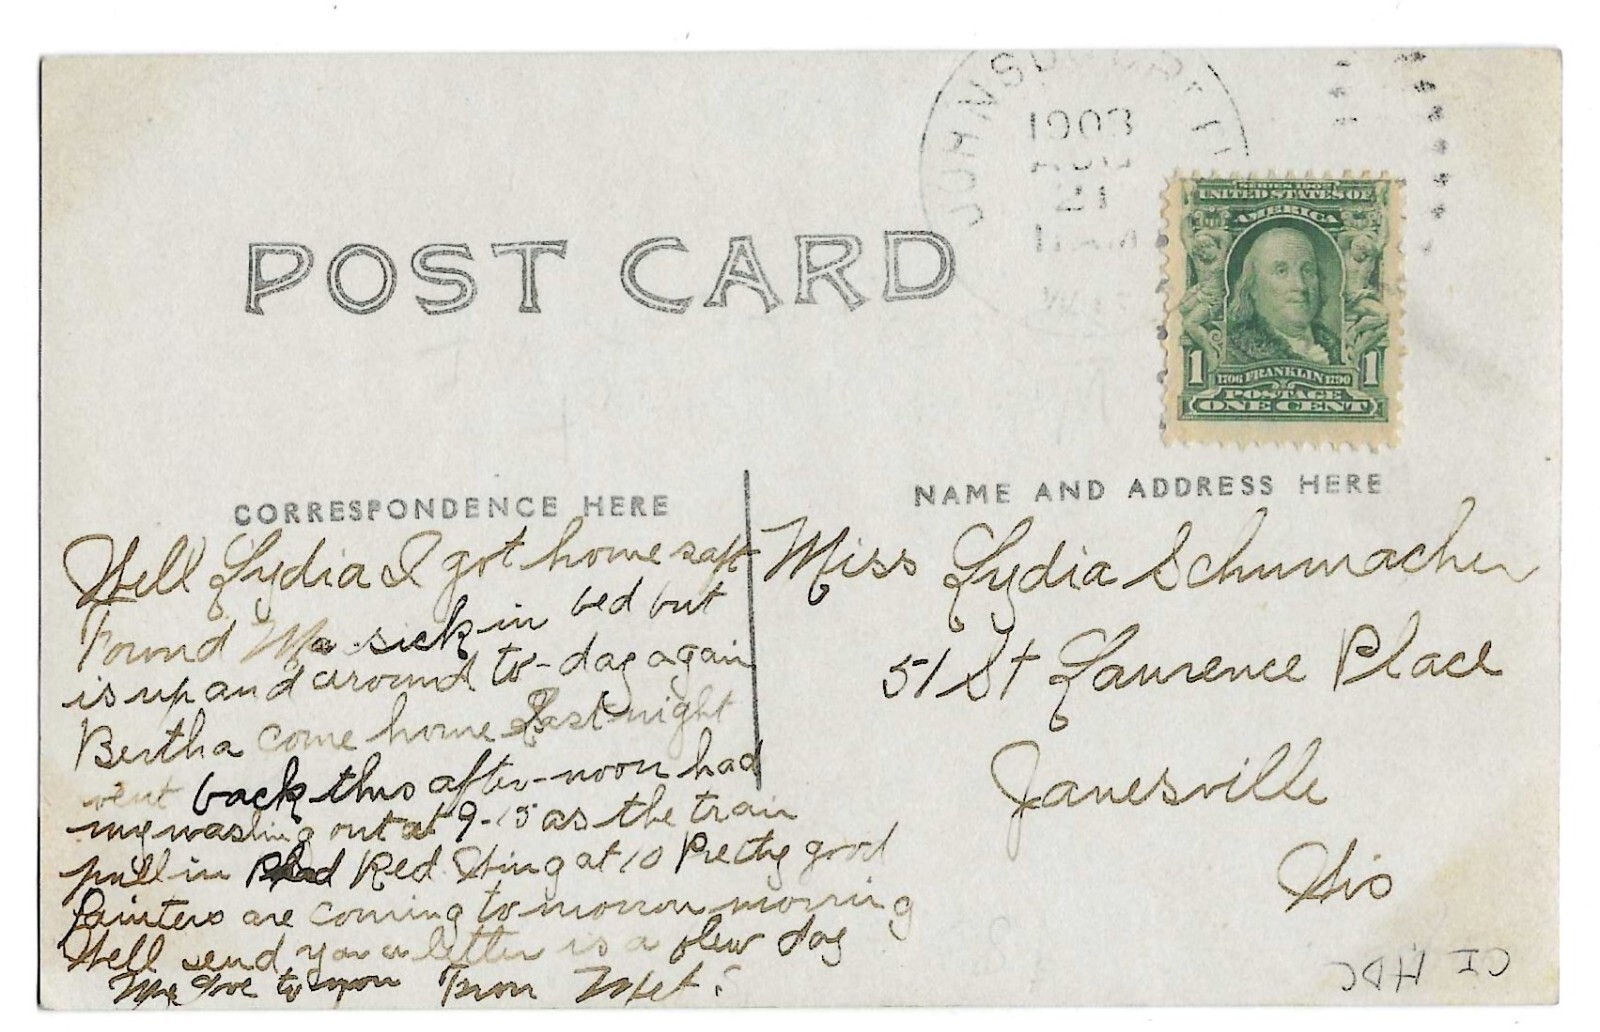 JOHNSBURG
1908
AUG
21
WIS
SERIES 1902
UNITED STATES OF
AMERICA
1 1
1706 FRANKLIN 1790
POSTAGE
ONE CENT
POST CARD
CORRESPONDENCE HERE
NAME AND ADDRESS HERE
Well Lydia I got home safe
Found Ma sick in bed but
is up and around to-day again
Bertha come home Last night
went back this after-noon had
my washing out at 9-15 as the train
pull in Red Wing at 10 Pretty good
Painters are coming to morrow morning
Well send you a letter is a few day
love to you From
Miss Lydia Schumacher
51 St Laurence Place
Janesville
Wis